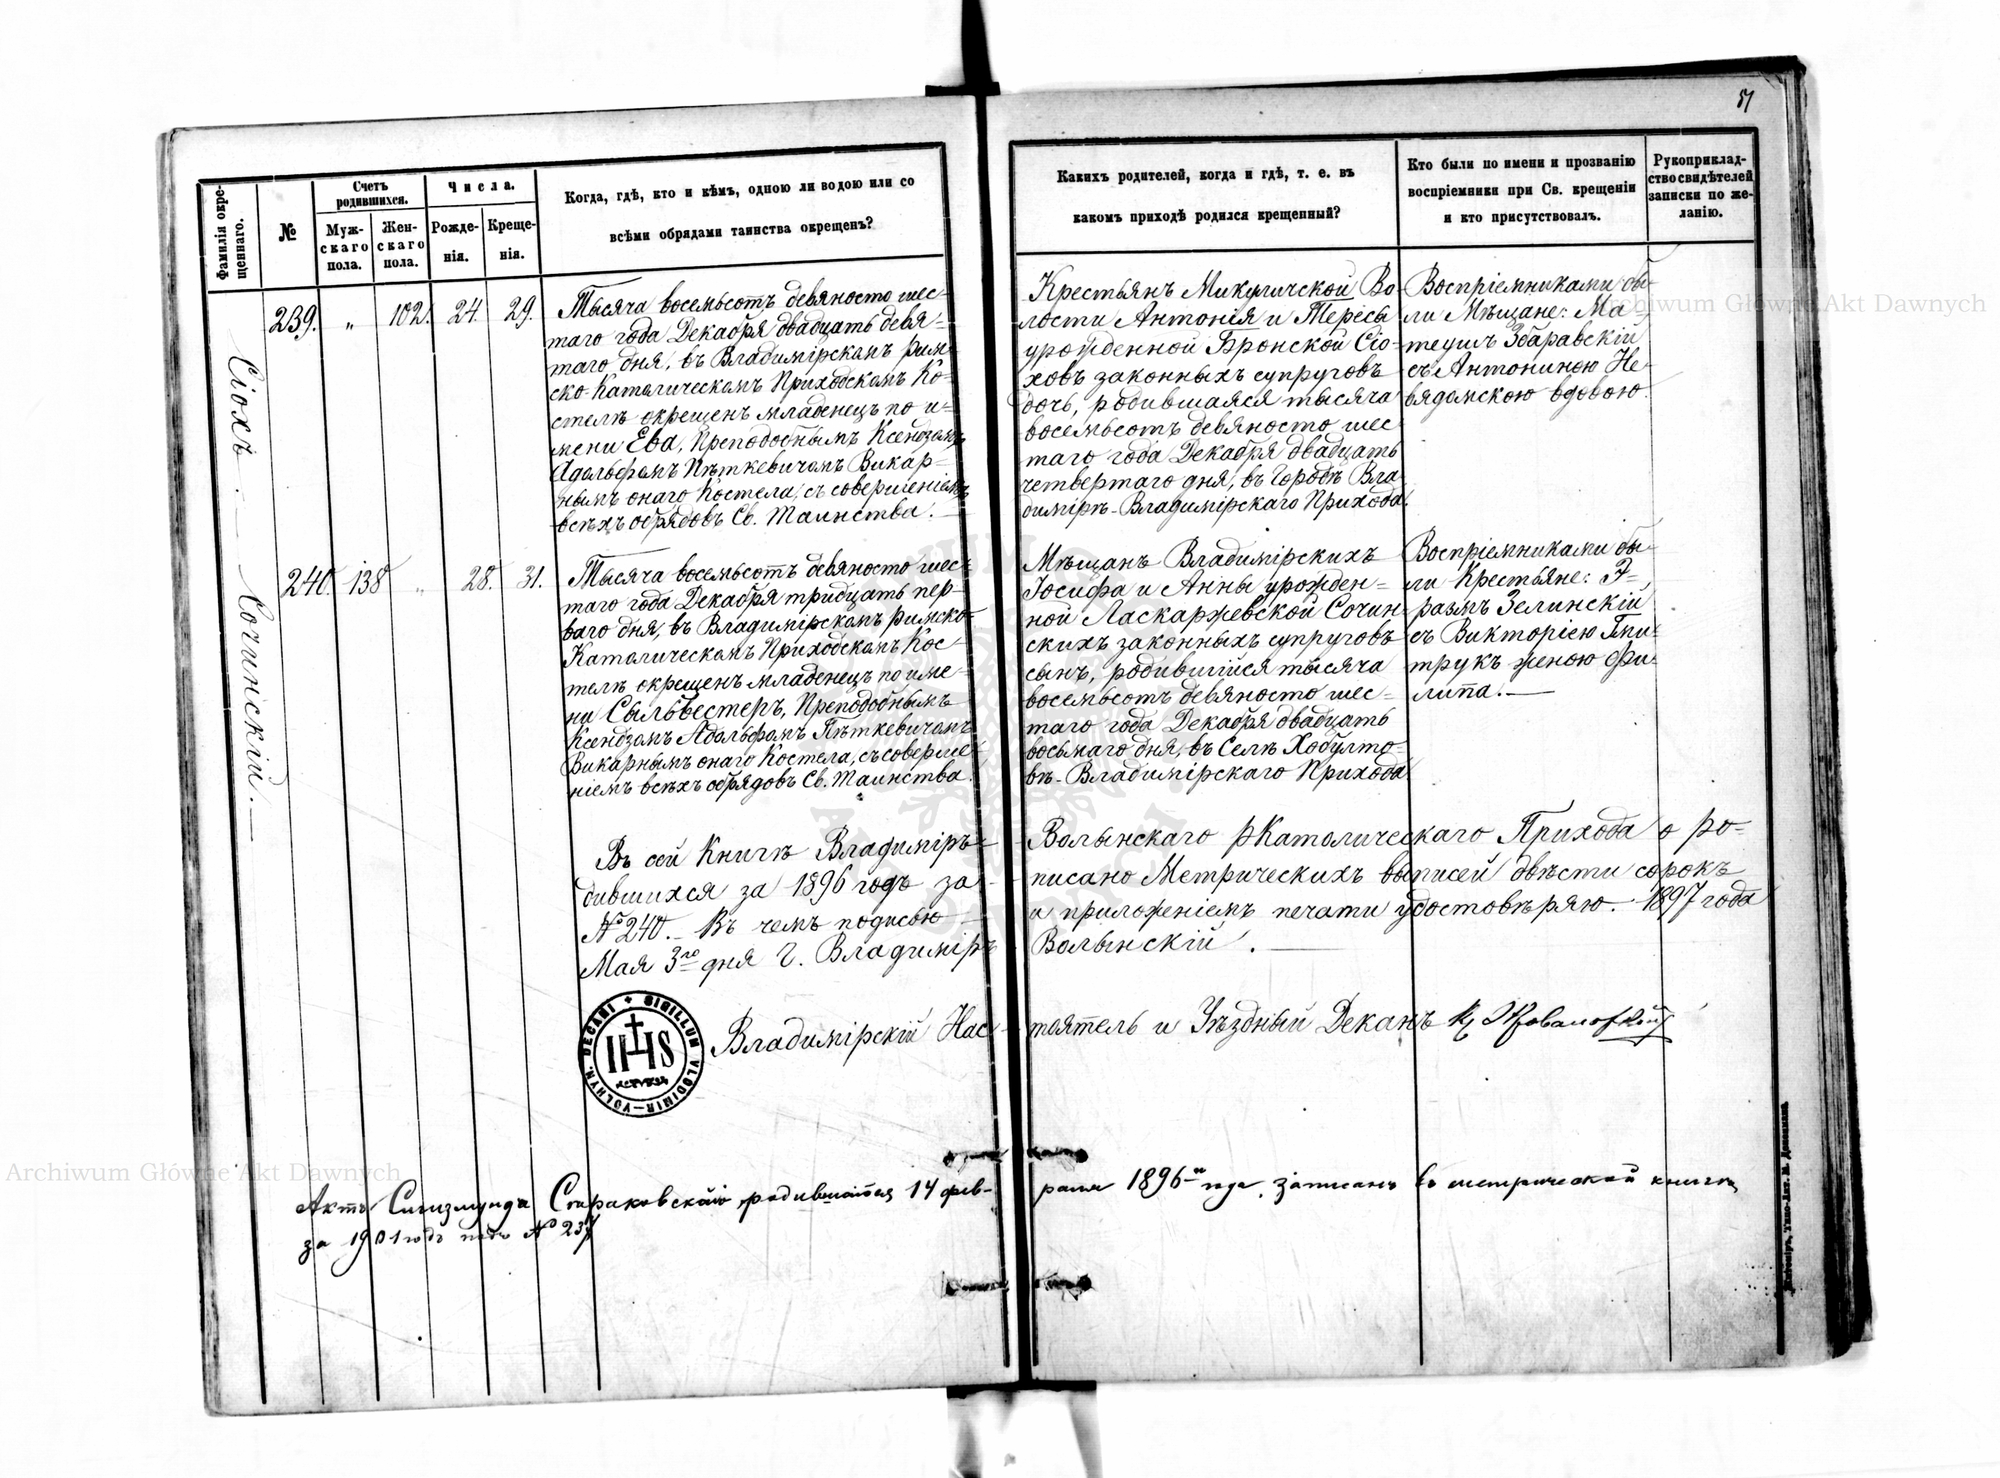 51
Фамилія окре-
щеннаго.
№
Счетъ
родившихся.
Муж-
скаго
пола.
Жен-
скаго
пола.
Числа.
Рожде-
нія.
Креще-
нія.
Когда, гдѣ, кто и кѣмъ, одною ли водою или со
всѣми обрядами таинства окрещенъ?
Какихъ родителей, когда и гдѣ, т. е. въ
какомъ приходѣ родился крещенный?
Кто были по имени и прозванію
воспріемники при Св. крещеніи
и кто присутствовалъ.
Рукоприклад-
ство свидѣтелей
записки по же-
ланію.
Сіохъ.
239. „ 102. 24. 29.
Тысяча восемьсотъ девяносто шес-
таго года Декабря двадцать девя-
таго дня, въ Владимірскомъ Рим-
ско-Католическомъ Приходскомъ Ко-
стелѣ окрещенъ младенецъ по и-
мени Ева, Преподобнымъ Ксендзомъ
Адольфомъ Пѣткевичомъ Викар-
нымъ онаго Костела, съ совершеніемъ
всѣхъ обрядовъ Св. Таинства.
Крестьянъ Микуличской Во-
лости Антонія и Тересы
урожденной Бронской Сіо-
ховъ законныхъ супруговъ
дочь, родившаяся тысяча
восемьсотъ девяносто шес
таго года Декабря двадцать
четвертаго дня, въ Городѣ Вла
димірѣ-Владимірскаго Прихода.
Воспріемниками бы-
ли Мѣщане: Ма-
теушъ Збаравскій
съ Антониною Не-
вядомскою вдовою.
Сочинскій.
240. 138 „ 28. 31.
Тысяча восемьсотъ девяносто шес-
таго года Декабря тридцать пер-
ваго дня, въ Владимірскомъ Римско-
Католическомъ Приходскомъ Кос-
телѣ окрещенъ младенецъ по име-
ни Сыльвестеръ, Преподобнымъ
Ксендзомъ Адольфомъ Пѣткевичомъ
Викарнымъ онаго Костела, съ соверше-
ніемъ всѣхъ обрядовъ Св. Таинства.
Мѣщанъ Владимірскихъ
Іосифа и Анны урожден-
ной Ласкаржевской Сочин-
скихъ законныхъ супруговъ
сынъ, родившійся тысяча
восемьсотъ девяносто шес-
таго года Декабря двадцать
восьмаго дня, въ Селѣ Хобулто-
вѣ-Владимірскаго Прихода
Воспріемниками бы-
ли Крестьяне: Э-
размъ Зелинскій
съ Викторіею
женою Фи-
липа.
Въ сей Книгѣ Владиміръ-Волынскаго РКатолическаго Прихода о ро-
дившихся за 1896 годъ записано Метрическихъ выписей двѣсти сорокъ
№ 240. Въ чемъ подисью и приложеніемъ печати удостовѣряю. 1897 года
Мая 3го дня Г. Владиміръ Волынскій.
Владимірскій Настоятель и Уѣздный Деканъ
SIGILLUM VLODIMIR-VOLHYN. DECANI
IHS
Актъ Сигизмунда родившагося 14 февраля 1896 года, записанъ въ метрической книгѣ
за 1901 годъ подъ № 237
Житоміръ, Типо-Лит.
Archiwum Główne Akt Dawnych
Archiwum Główne Akt Dawnych